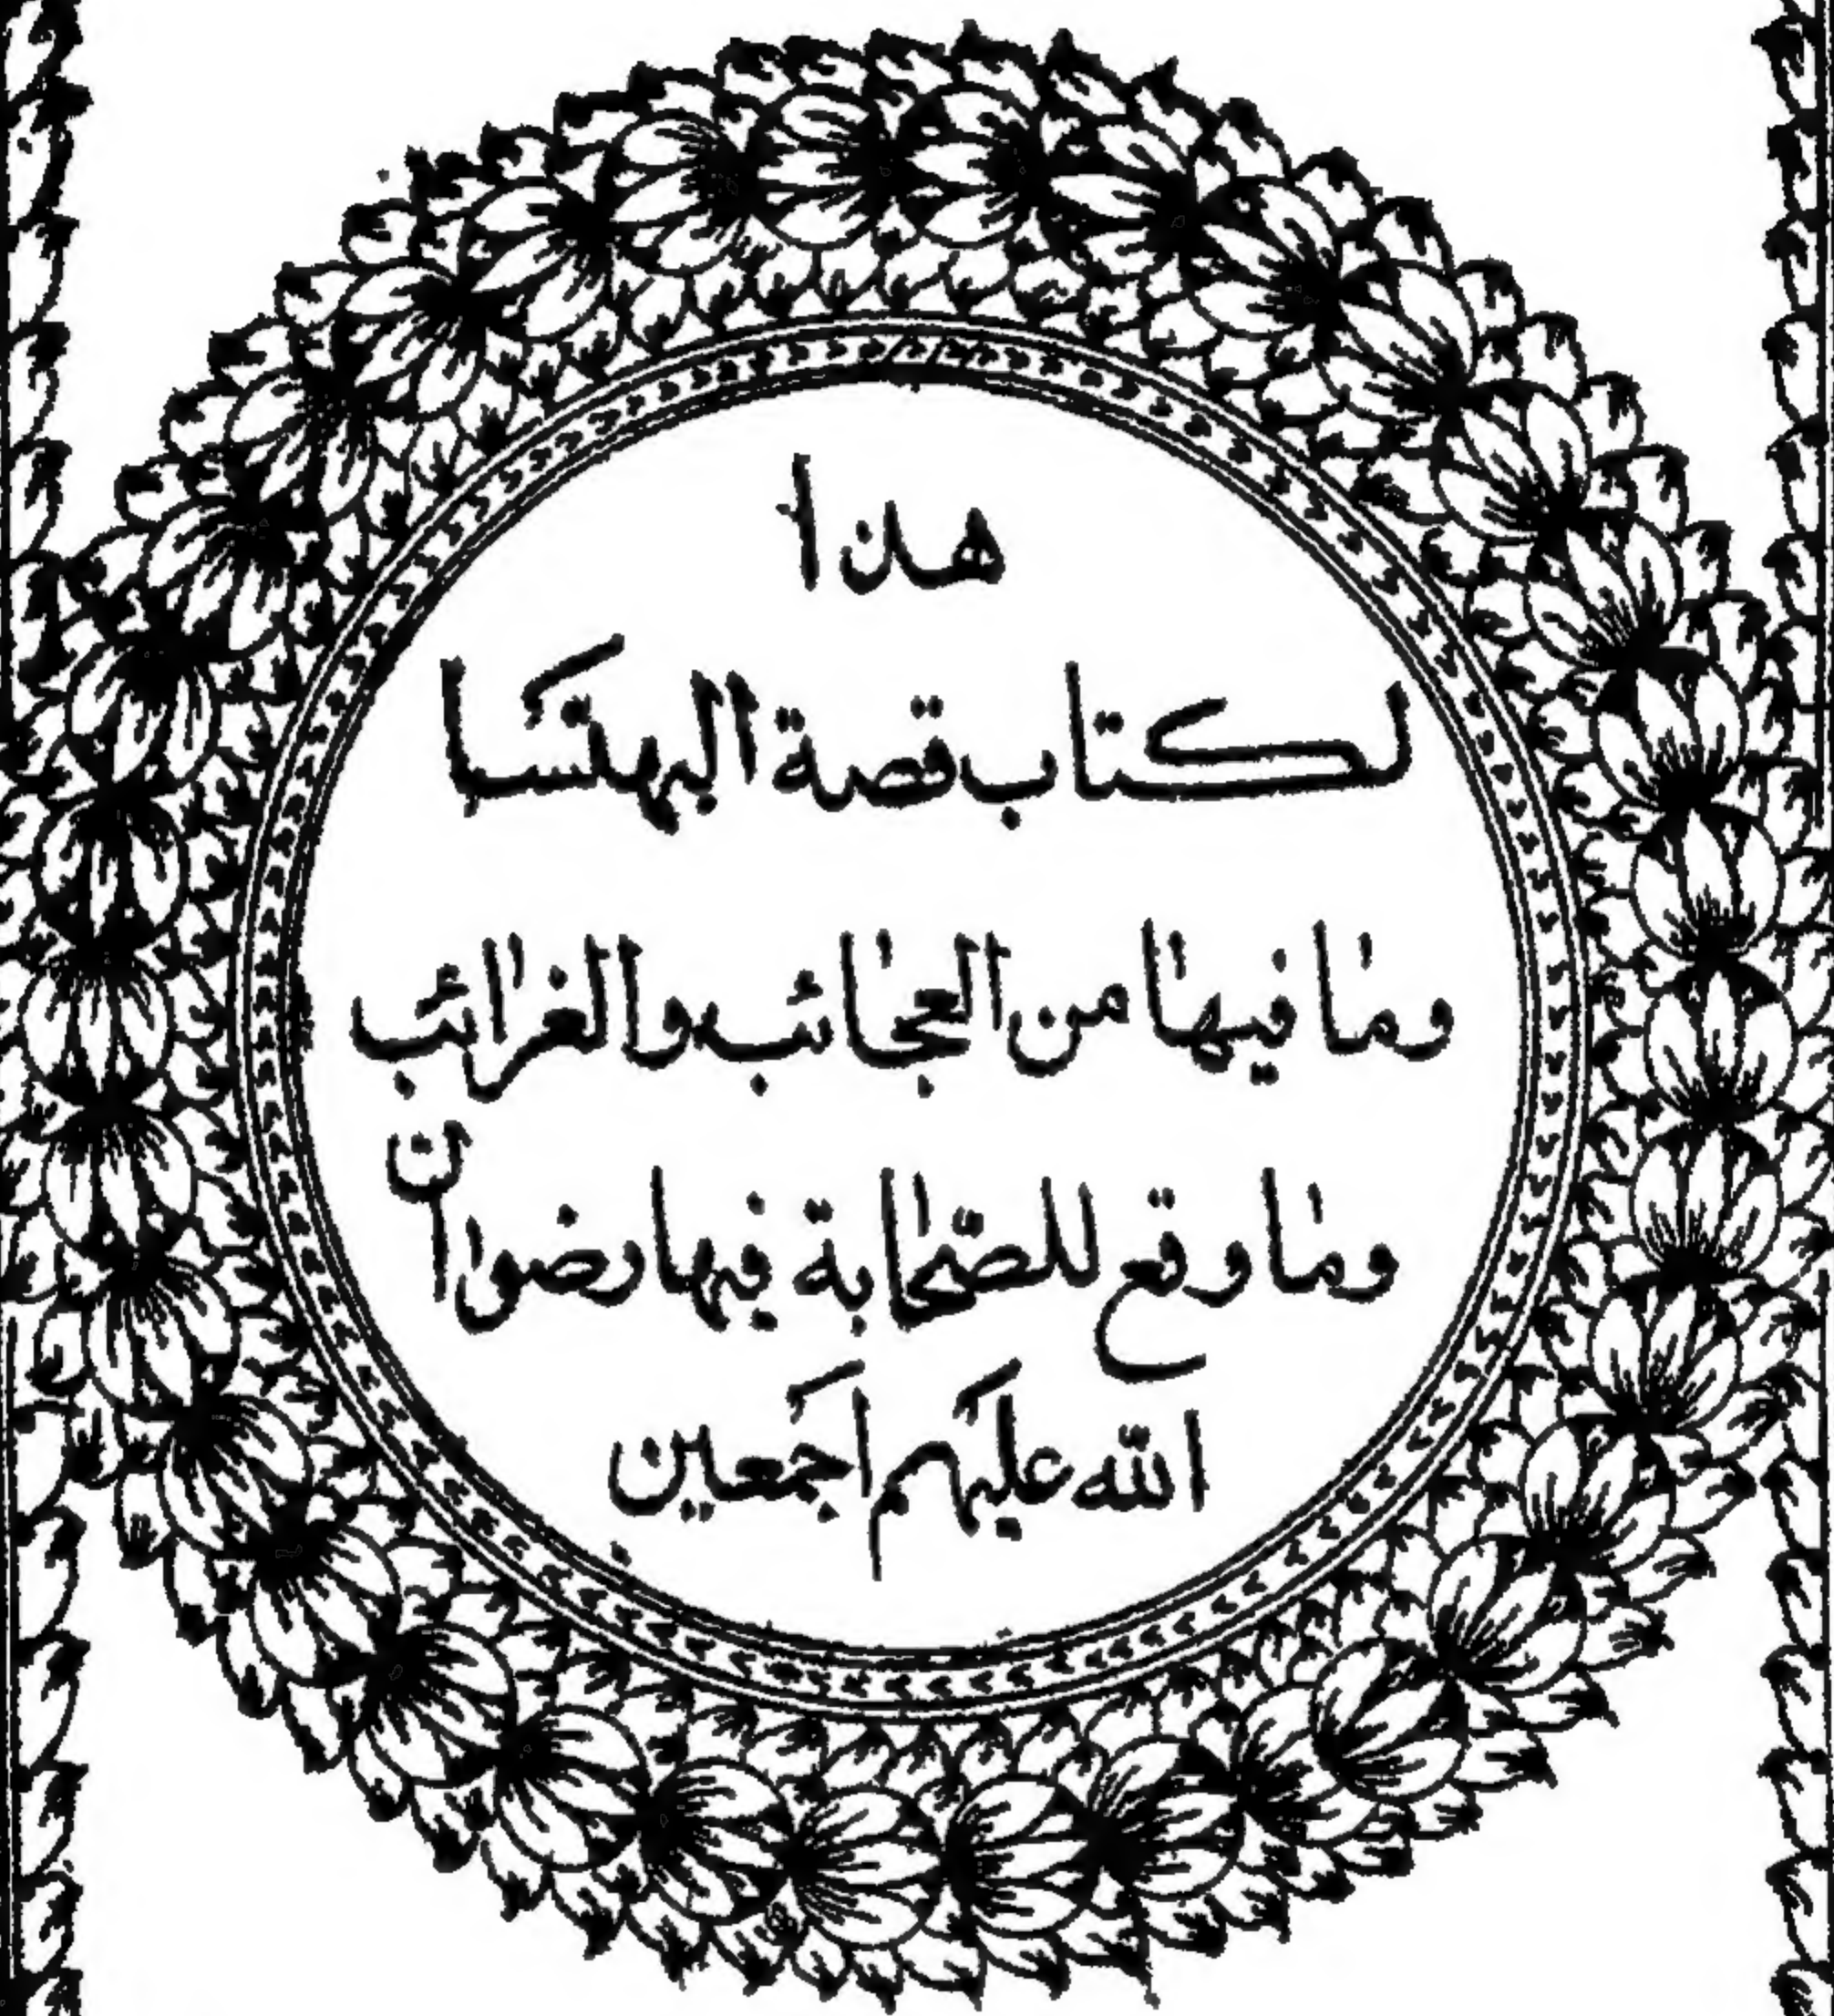 هذا
لكتاب قصة البهنسا
وما فيها من العجائب والغرائب
وما وقع للصحابة فيها رضوان
الله عليهم اجمعين